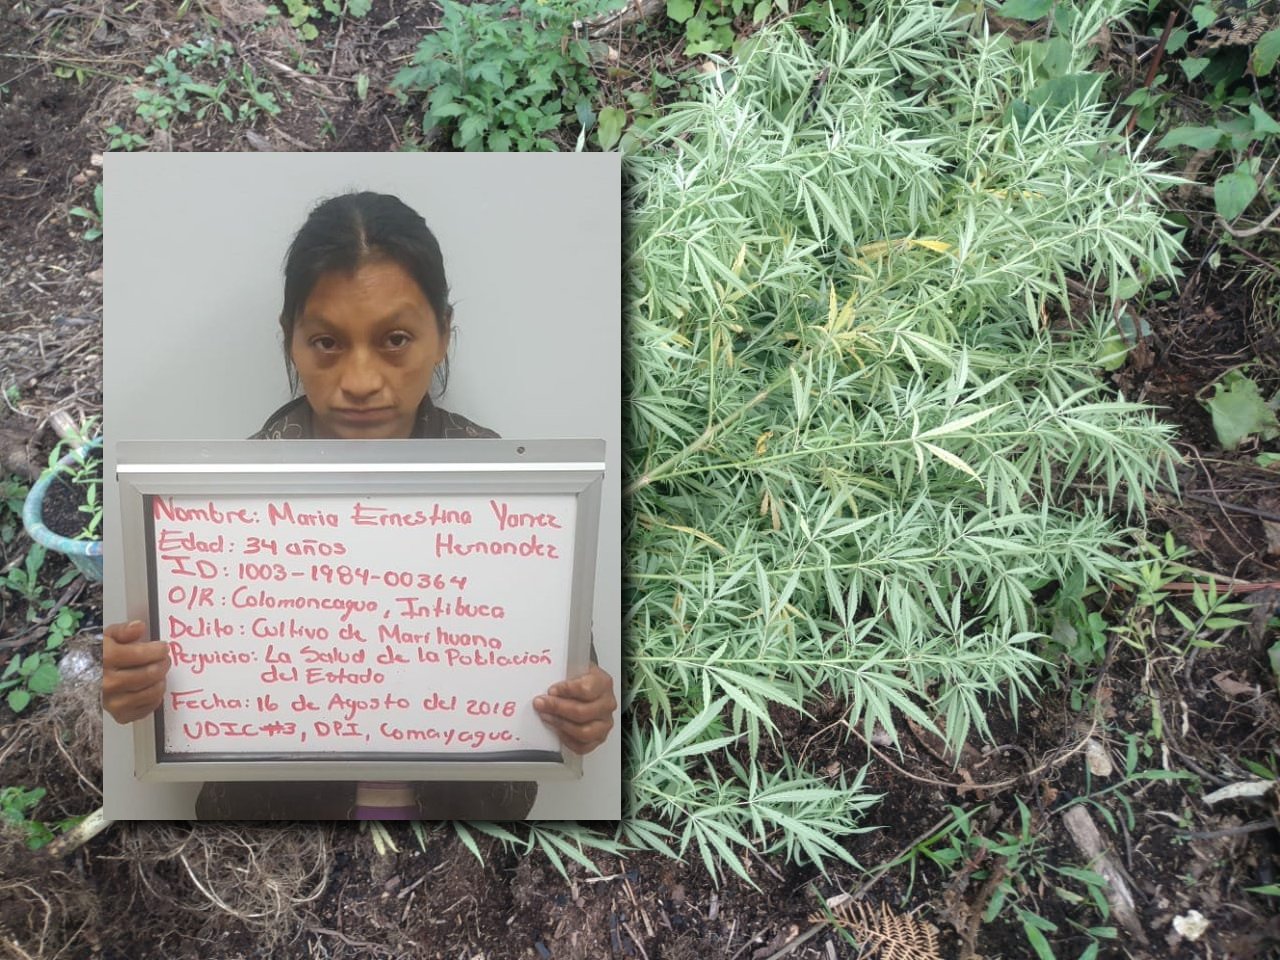 Nombre: Maria Ernestina Yanez
Edad: 34 años Hernandez
ID: 1003-1984-00364
O/R: Colomoncagua, Intibuca
Delito: Cultivo de Marihuana
Perjuicio: La Salud de la Población
del Estado
Fecha: 16 de Agosto del 2018
UDIC #3, DPI, Comayagua.